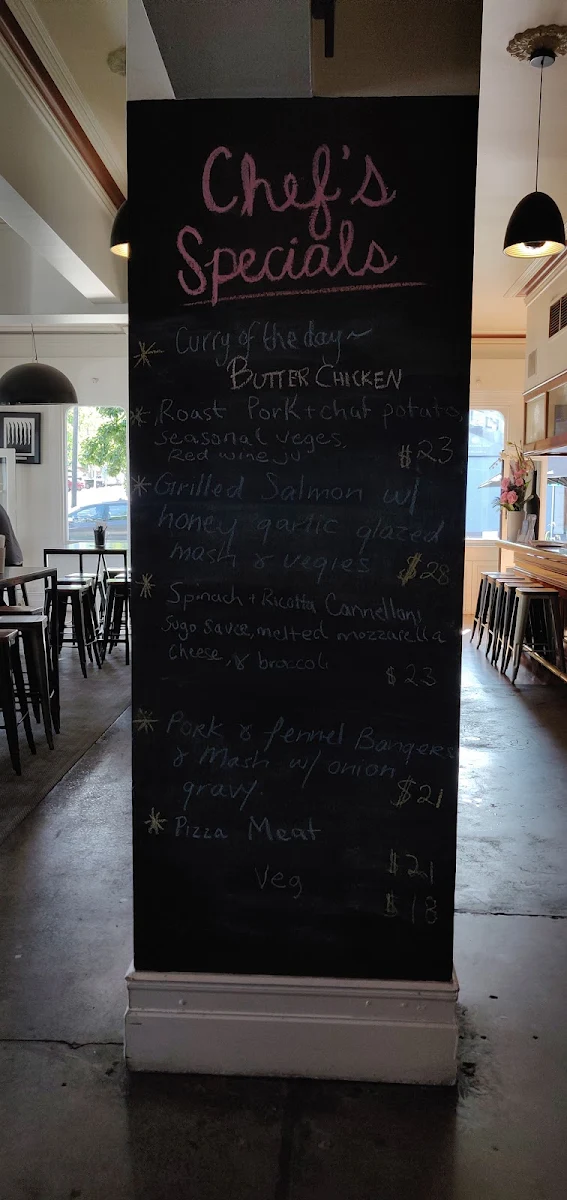 Chef's
Specials
* Curry of the day ~
BUTTER CHICKEN
* Roast Pork + chat potato,
seasonal veges,
Red wine ju $23
* Grilled Salmon w/
honey garlic glazed
mash & vegies $28
* Spinach + Ricotta Cannelloni
Sugo sauce, melted mozzarella
cheese, & broccoli
$23
* Pork & fennel Bangers
& Mash w/ onion
gravy. $21
* Pizza Meat
$21
Veg
$18